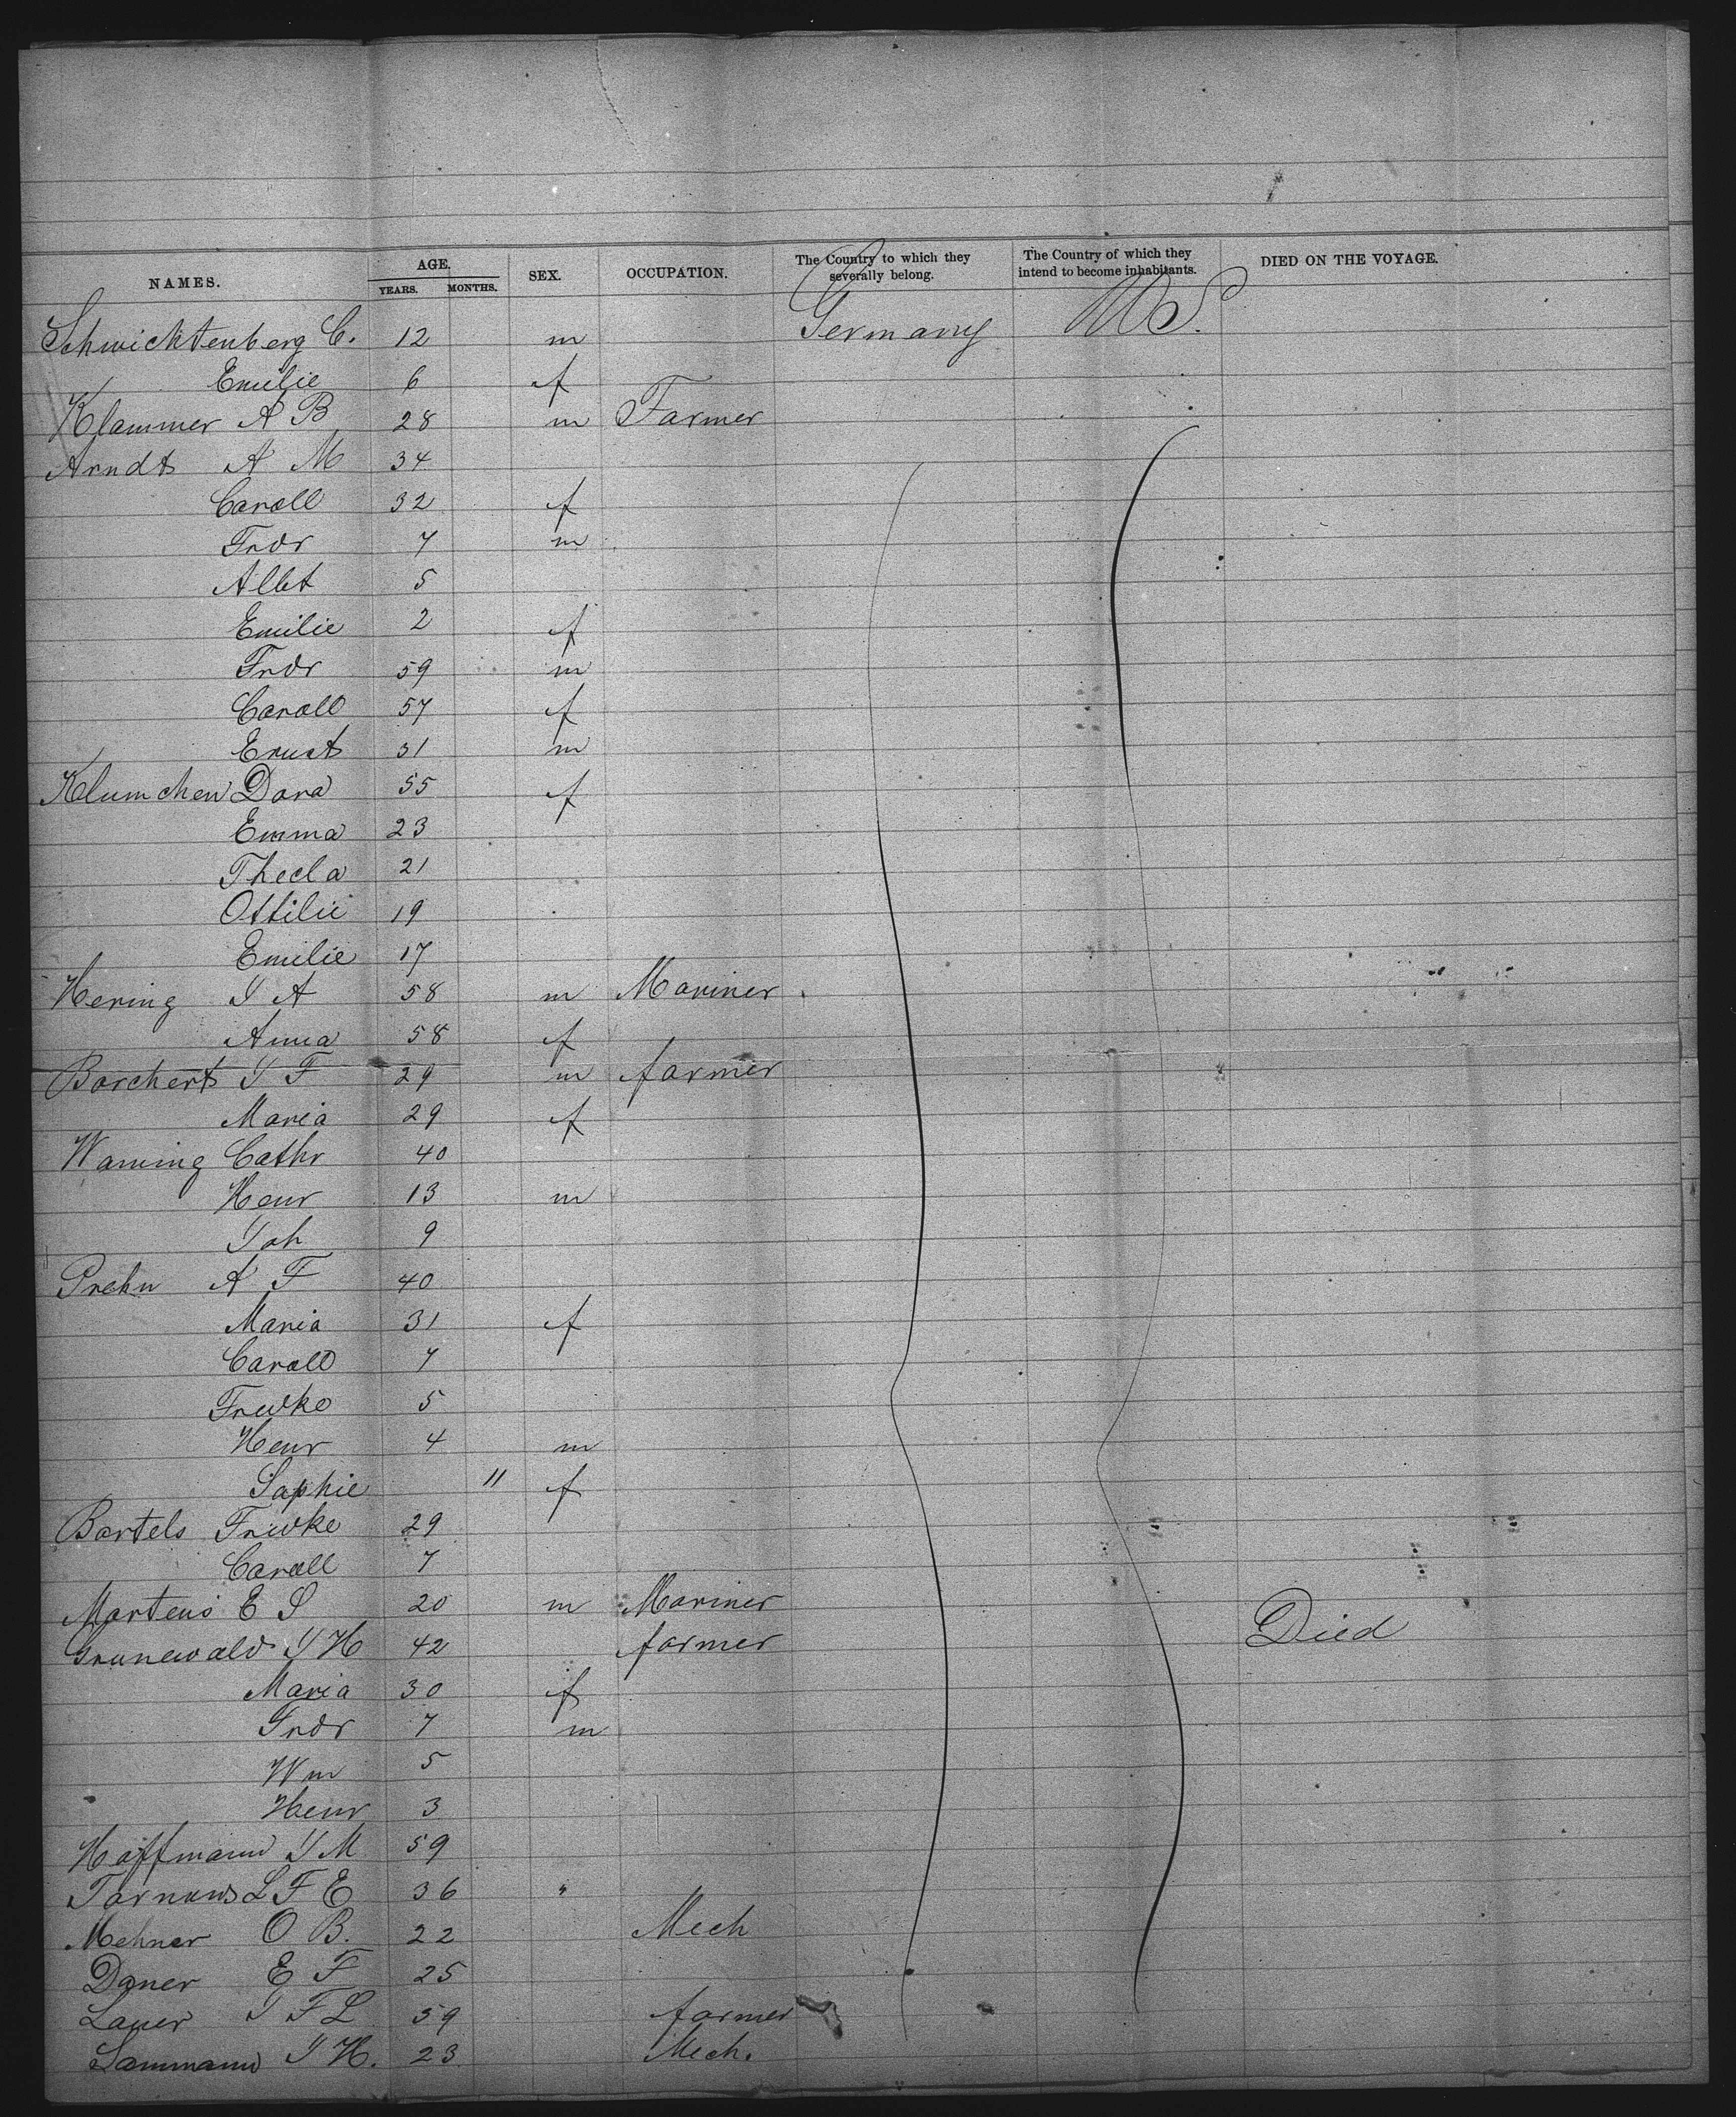 NAMES. AGE. YEARS. MONTHS. SEX. OCCUPATION. The Country to which they severally belong. The Country of which they intend to become inhabitants. DIED ON THE VOYAGE.
Schwichtenberg C. 12 m Germany U S.
Emilie 6 f
Klammer A B 28 m Farmer
Arndt A M 34
Caroll 32 f
Frdr 7 m
Albt 5
Emilie 2 f
Frdr 59 m
Caroll 57 f
Ernst 31 m
Klumchen Dora 55 f
Emma 23
Thecla 21
Ottilie 19
Emilie 17
Hering J A 58 m Mariner
Anna 58 f
Borchert J F 29 m farmer
Maria 29 f
Waming Cathr 40
Henr 13 m
Joh 9
Prehn A F 40
Maria 31 f
Caroll 7
Friedke 5
Henr 4 m
Sophie 11 f
Bartels Friedke 29
Caroll 7
Martens E S 20 m Mariner
Grunewald J H 42 farmer Died
Maria 30 f
Frdr 7 m
Wm 5
Henr 3
Hoffmann J M 59
L F E 36 "
Mehner O B. 22 Mech
Daner E F 25
Lauer J F L 59 farmer
Lammann J H. 23 Mech.